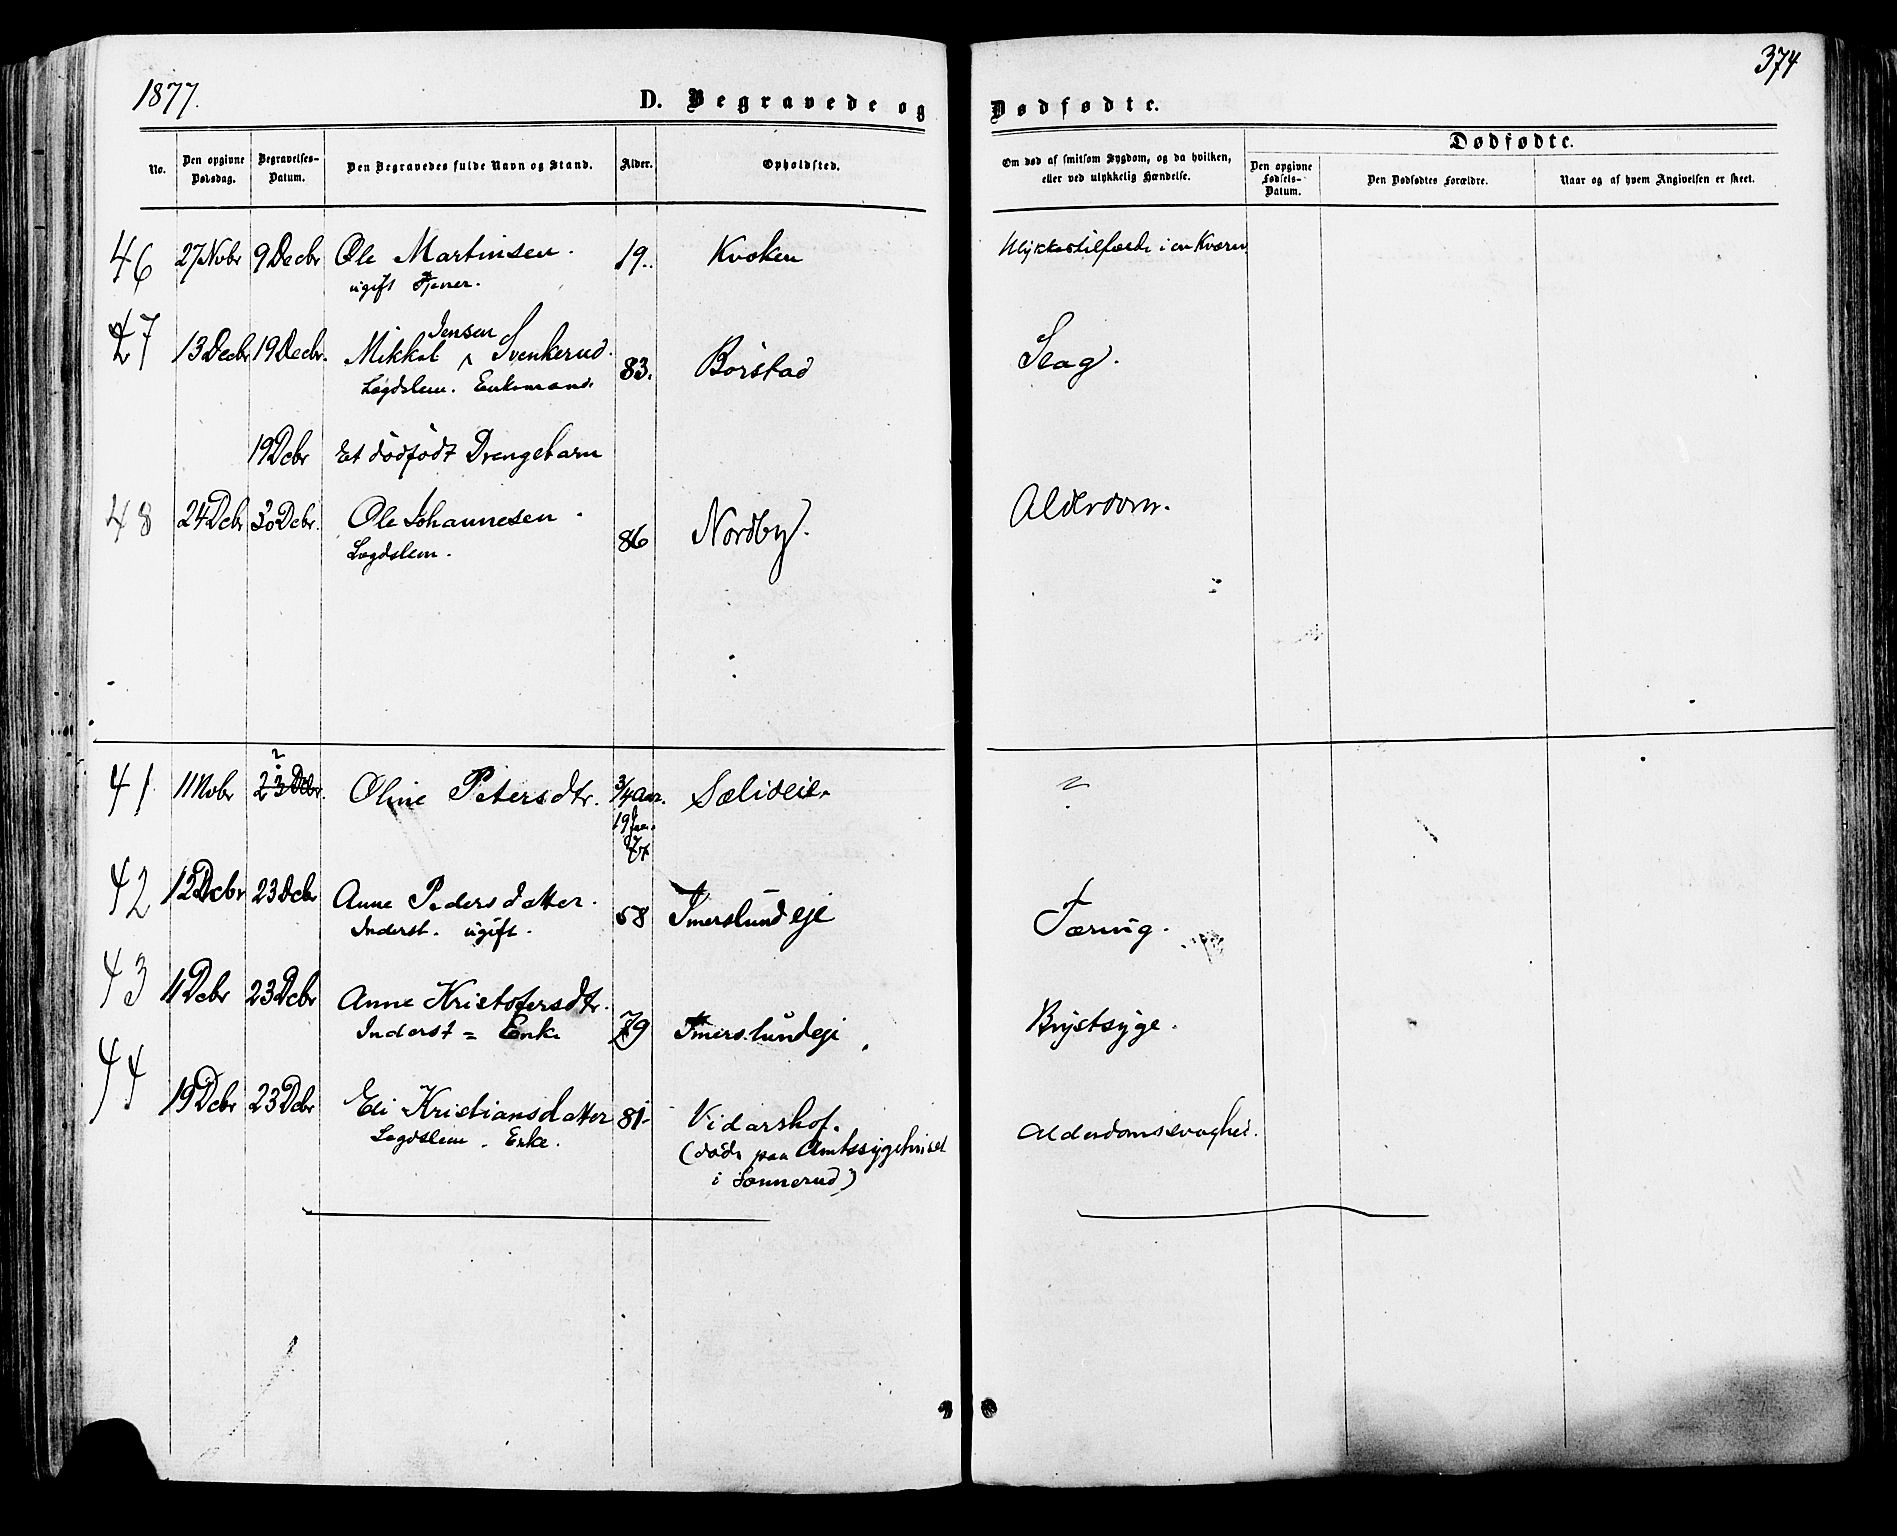 1877.
374
D. Begravede og Dødfødte.
No.
Den opgivne Dødsdag.
Begravelses-Datum.
Den Begravedes fulde Navn og Stand.
Alder.
Opholdsted.
Om død af smitsom Sygdom, og da hvilken, eller ved ulykkelig Hændelse.
Dødfødte.
Den opgivne Fødsels-Datum.
Den Dødfødtes Forældre.
Naar og af hvem Angivelsen er skeet.
46 27 Novbr 9 Decbr Ole Martinsen. 19. Kvoken Ulykkestilfælde i en Kværn.
ugift Tjener.
47 13 Decbr 19 Decbr. Mikkel Jensen Svenkerud. 83. Börstad Slag.
Lægdslem. Enkemand.
19 Dcbr Et dödfödt Drengebarn
48 24 Dcbr 30 Dcbr. Ole Johannesen. 86 Nordby. Alderdom.
Lægdslem.
41 11 Novbr 23 Dcbr. ? Oline Petersdtr. 3/4 Aar. Sælideie. ?
19 Jan. 77
42 12 Dcbr 23 Dcbr Anne Pedersdatter. 58 Imerslundeje Tæring.
Inderst. ugift.
43 11 Dcbr 23 Dcbr Anne Kristofersdtr. 79 Imerslundeje Brystsyge.
Inderst = Enke
44 19 Dcbr 23 Dcbr Edi Kristiansdatter 81. Vidarshof. Alderdomssvaghed.
Legdslem. Enke. (döde paa Amtssygehuset
i Sannerud)